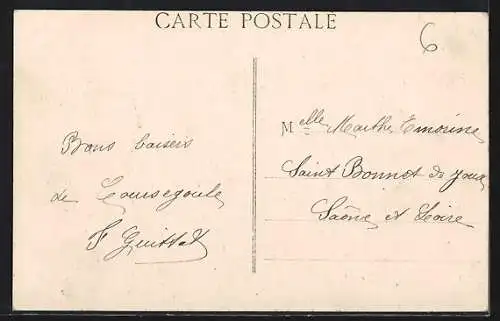 CARTE POSTALE
6
Bons baisers
de Coursegoule
F Guittet
Melle Marthe Emorine
Saint Bonnet de Joux
Saône et Loire